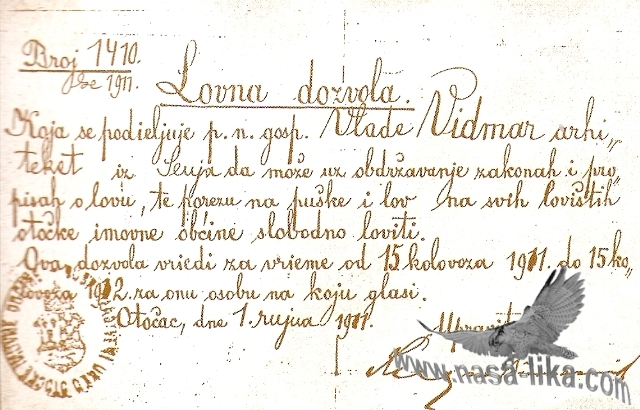 Broj 1410.
1911.
Lovna dozvola.
Koja se podieljuje p. n. gosp. Vlade Vidmar arhi„
tekt iz Senja da može uz obdržavanje zakonah i pro„
pisah o lovu, te porezu na puške i lov na svih lovištih
otočke imovne obćine slobodno loviti.
Ova dozvola vriedi za vrieme od 15 kolovoza 1911. do 15 ko„
lovoza 1912. za onu osobu na koju glasi.
Otočac, dne 1. rujna 1911.
www.nasa-lika.com